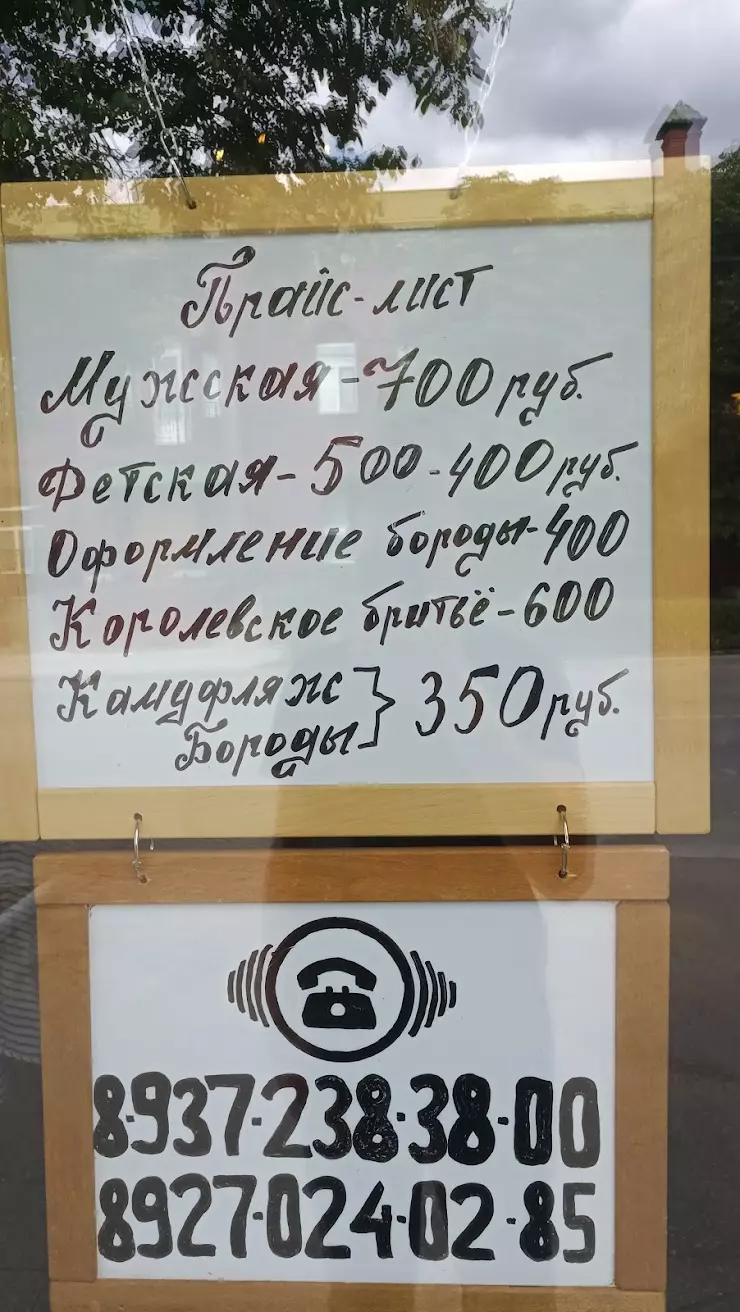 Прайс-лист
Мужская-700 руб.
Детская-500-400 руб.
Оформление бороды-400
Королевское бритьё-600
Камуфляж } 350 руб.
Бороды
8-937-238-38-00
8927-024-02-85